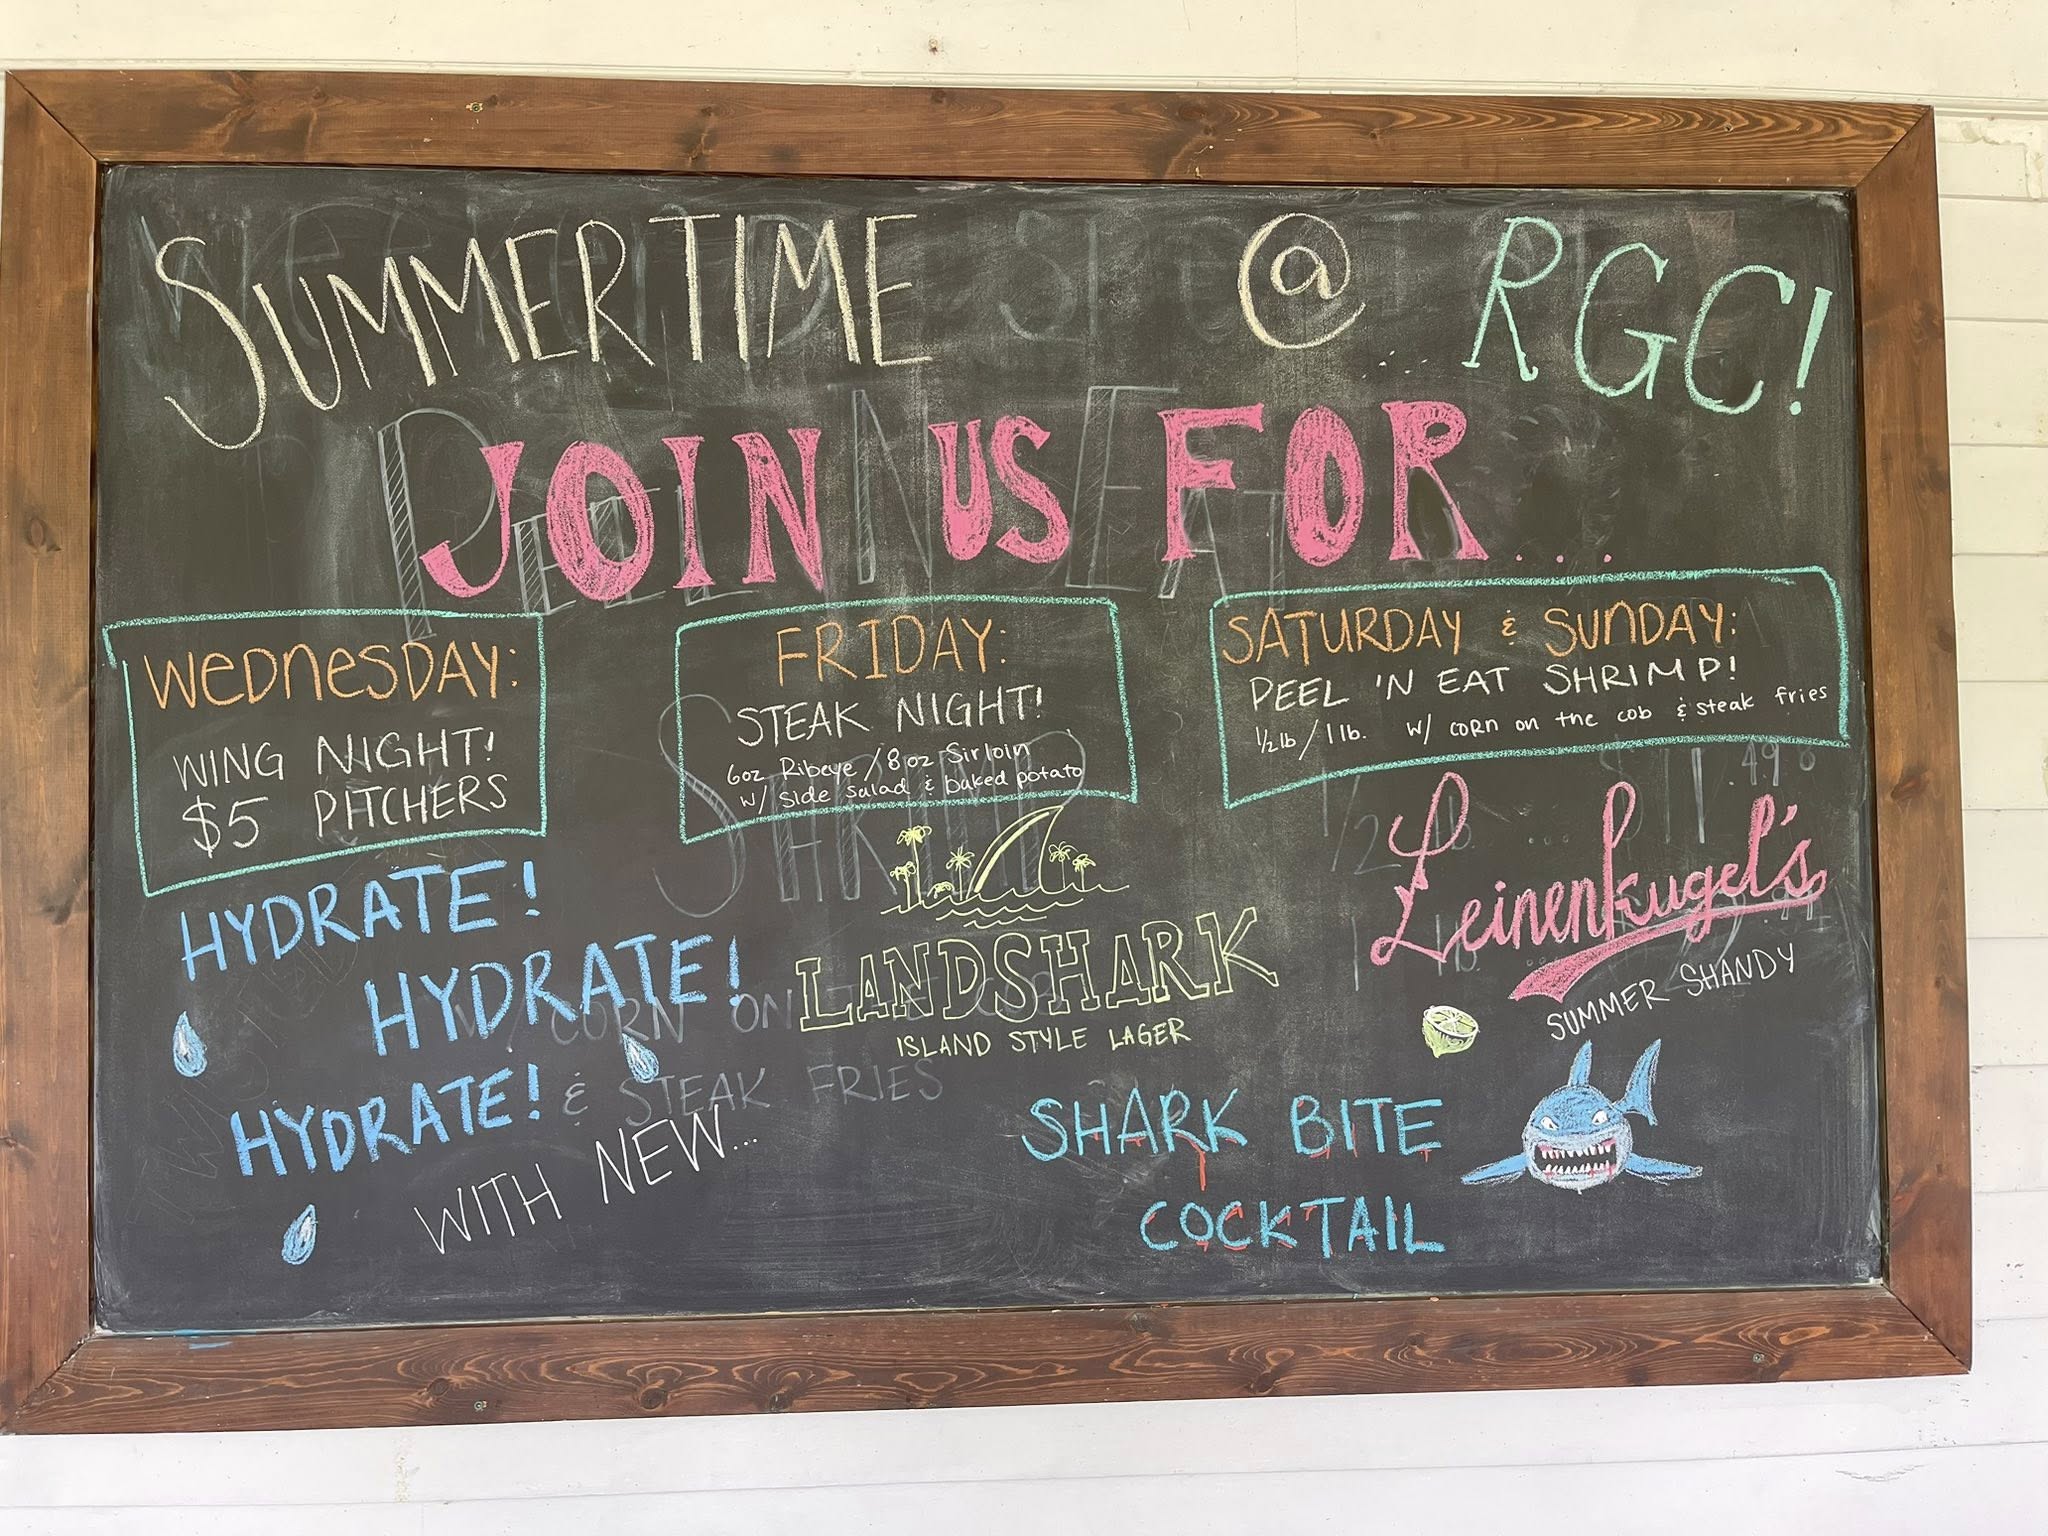 SUMMERTIME @ RGC!
JOIN US FOR....
WEDNESDAY:
WING NIGHT!
$5 PITCHERS
FRIDAY:
STEAK NIGHT!
6oz Ribeye / 8oz Sirloin
w/ side salad & baked potato
SATURDAY & SUNDAY:
PEEL 'N EAT SHRIMP!
1/2 lb / 1 lb. w/ corn on the cob & steak fries
HYDRATE!
HYDRATE!
HYDRATE!
WITH NEW...
LANDSHARK
ISLAND STYLE LAGER
Leinenkugel's
SUMMER SHANDY
SHARK BITE
COCKTAIL
Weekend Special
PEEL N EAT
SHRIMP
1/2 lb. ... $11.49
1 lb.
W/ CORN ON THE COB
& STEAK FRIES